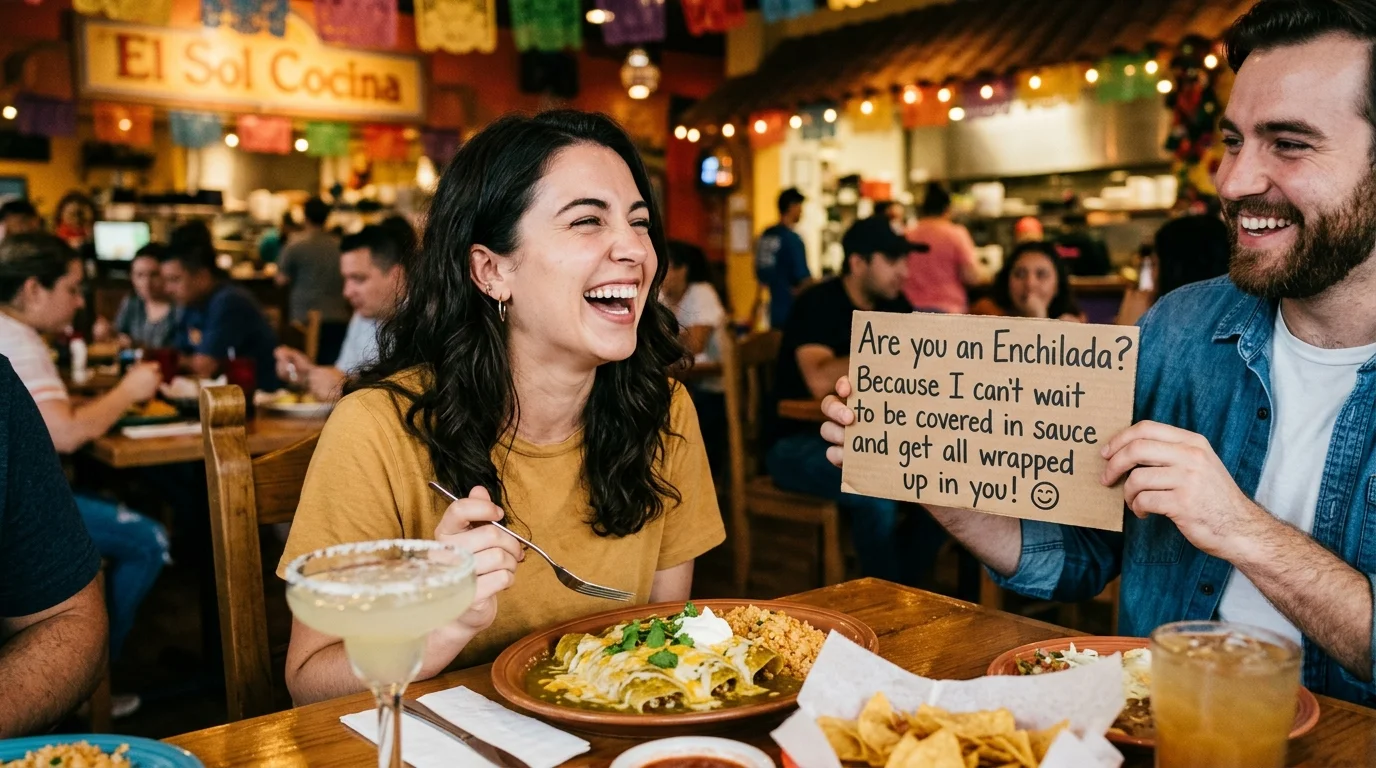 El Sol Cocina
Are you an Enchilada?
Because I can't wait
to be covered in sauce
and get all wrapped
up in you! ☺